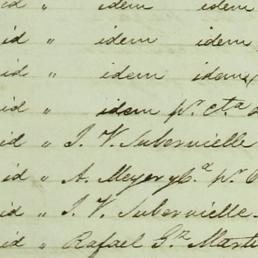 id " idem idem
id " idem idem
id " idem idem
id " idem pr. cta.
id " J. V. Subervielle
id " A. Meyer y Ca. pr.
id " J. V. Subervielle.
id " Rafael Gz. Marti